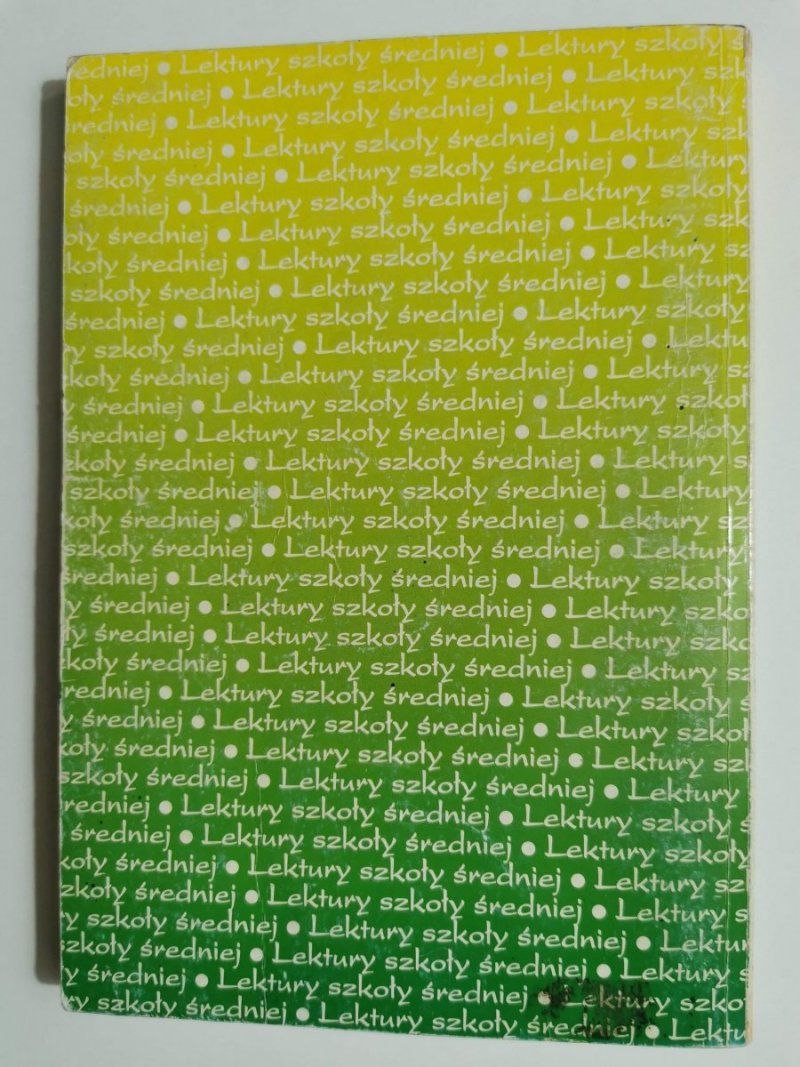 średniej • Lektury szkoły średniej • Lektury szkoły
szkoły średniej • Lektury szkoły średniej • Lektury szkoły
średniej • Lektury szkoły średniej • Lektury szkoły
szkoły średniej • Lektury szkoły średniej • Lektury szkoły
szkoły średniej • Lektury szkoły średniej • Lektury
średniej • Lektury szkoły średniej • Lektury szkoły
szkoły średniej • Lektury szkoły średniej • Lektury szkoły
szkoły średniej • Lektury szkoły średniej • Lektury szkoły
szkoły średniej • Lektury szkoły średniej • Lektury
średniej • Lektury szkoły średniej • Lektury szkoły
szkoły średniej • Lektury szkoły średniej • Lektury
szkoły średniej • Lektury szkoły średniej • Lektury
średniej • Lektury szkoły średniej • Lektury szkoły
średniej • Lektury szkoły średniej • Lektury szkoły
szkoły średniej • Lektury szkoły średniej • Lektury
szkoły średniej • Lektury szkoły średniej • Lektury
szkoły średniej • Lektury szkoły średniej • Lektury
szkoły średniej • Lektury szkoły średniej • Lektury
średniej • Lektury szkoły średniej • Lektury szkoły
średniej • Lektury szkoły średniej • Lektury szkoły
średniej • Lektury szkoły średniej • Lektury szkoły
szkoły średniej • Lektury szkoły średniej • Lektury
średniej • Lektury szkoły średniej • Lektury szkoły
średniej • Lektury szkoły średniej • Lektury szkoły
szkoły średniej • Lektury szkoły średniej • Lektury
szkoły średniej • Lektury szkoły średniej • Lektury
średniej • Lektury szkoły średniej • Lektury szkoły
średniej • Lektury szkoły średniej • Lektury szkoły
szkoły średniej • Lektury szkoły średniej • Lektury
szkoły średniej • Lektury szkoły średniej • Lektury
szkoły średniej • Lektury szkoły średniej • Lektury
szkoły średniej • Lektury szkoły średniej • Lektury
średniej • Lektury szkoły średniej • Lektury szkoły
szkoły średniej • Lektury szkoły średniej • Lektury